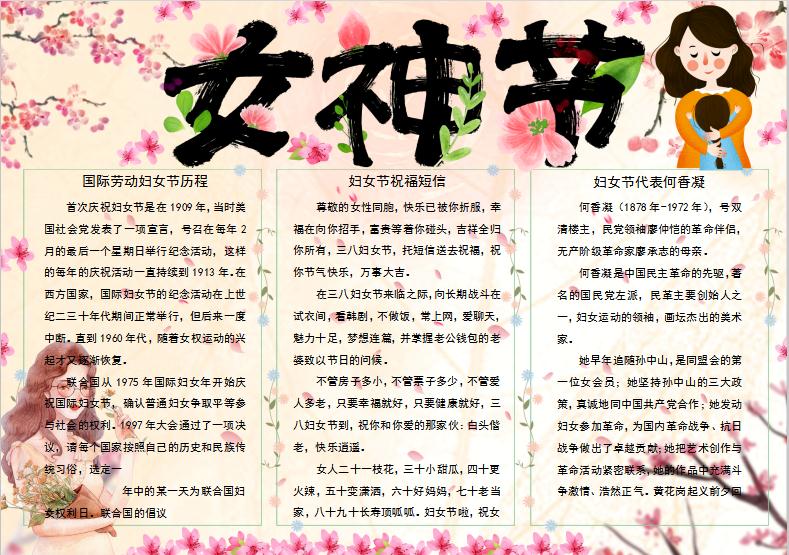 女神节
国际劳动妇女节历程
首次庆祝妇女节是在 1909 年, 当时美
国社会党发表了一项宣言，号召在每年 2
月的最后一个星期日举行纪念活动，这样
的每年的庆祝活动一直持续到 1913 年。在
西方国家，国际妇女节的纪念活动在上世
纪二三十年代期间正常举行，但后来一度
中断。直到 1960 年代，随着女权运动的兴
起才又逐渐恢复。
联合国从 1975 年国际妇女年开始庆
祝国际妇女节，确认普通妇女争取平等参
与社会的权利。1997 年大会通过了一项决
议，请每个国家按照自己的历史和民族传
统习俗，选定一
年中的某一天为联合国妇
女权利日。联合国的倡议
妇女节祝福短信
尊敬的女性同胞，快乐已被你折服，幸
福在向你招手，富贵等着你碰头，吉祥全归
你所有，三八妇女节，托短信送去祝福，祝
你节气快乐，万事大吉。
在三八妇女节来临之际,向长期战斗在
试衣间，看韩剧，不做饭，常上网，爱聊天，
魅力十足，梦想连篇，并掌握老公钱包的老
婆致以节日的问候。
不管房子多小，不管票子多少，不管爱
人多老，只要幸福就好，只要健康就好，三
八妇女节到，祝你和你爱的那家伙：白头偕
老，快乐逍遥。
女人二十一枝花，三十小甜瓜，四十更
火辣，五十变潇洒，六十好妈妈，七十老当
家，八十九十长寿顶呱呱。妇女节啦，祝女
妇女节代表何香凝
何香凝（1878 年-1972 年），号双
清楼主，民党领袖廖仲恺的革命伴侣，
无产阶级革命家廖承志的母亲。
何香凝是中国民主革命的先驱,著
名的国民党左派，民革主要创始人之
一，妇女运动的领袖，画坛杰出的美术
家。
她早年追随孙中山，是同盟会的第
一位女会员；她坚持孙中山的三大政
策，真诚地同中国共产党合作；她发动
妇女参加革命，为国内革命战争、抗日
战争做出了卓越贡献;她把艺术创作与
革命活动紧密联系,她的作品中充满斗
争激情、浩然正气。黄花岗起义前夕回